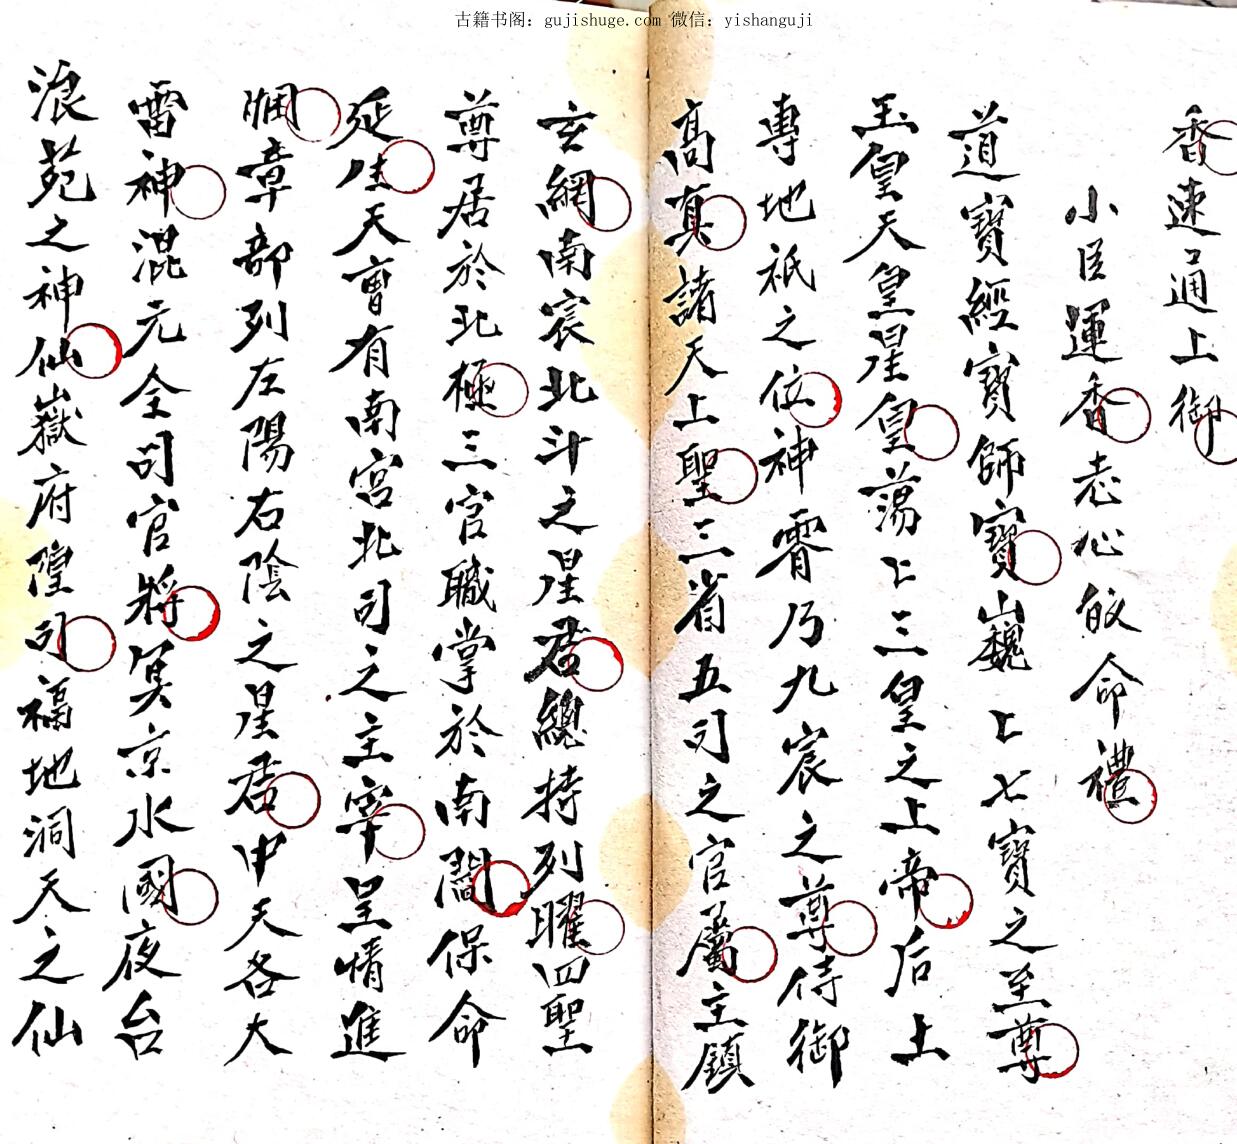 古籍书阁：gujishuge.com 微信：yishanguji
香速通上御
小臣運香志心皈命禮
道寶經寶師寶巍〻七寶之至尊
玉皇天皇星皇蕩〻三皇之上帝后土
專地祇之位神霄乃九宸之尊侍御
高真諸天上聖三省五司之官屬主鎮
玄綱南宸北斗之星君總持列曜四聖
尊居於北極三官職掌於南閣保命
延生天曹有南宮北司之主宰呈情進
章部列左陽右陰之星君中天各大
雷神混元全司官將冥京水國夜台
浪苑之神仙嶽府隍司福地洞天之仙